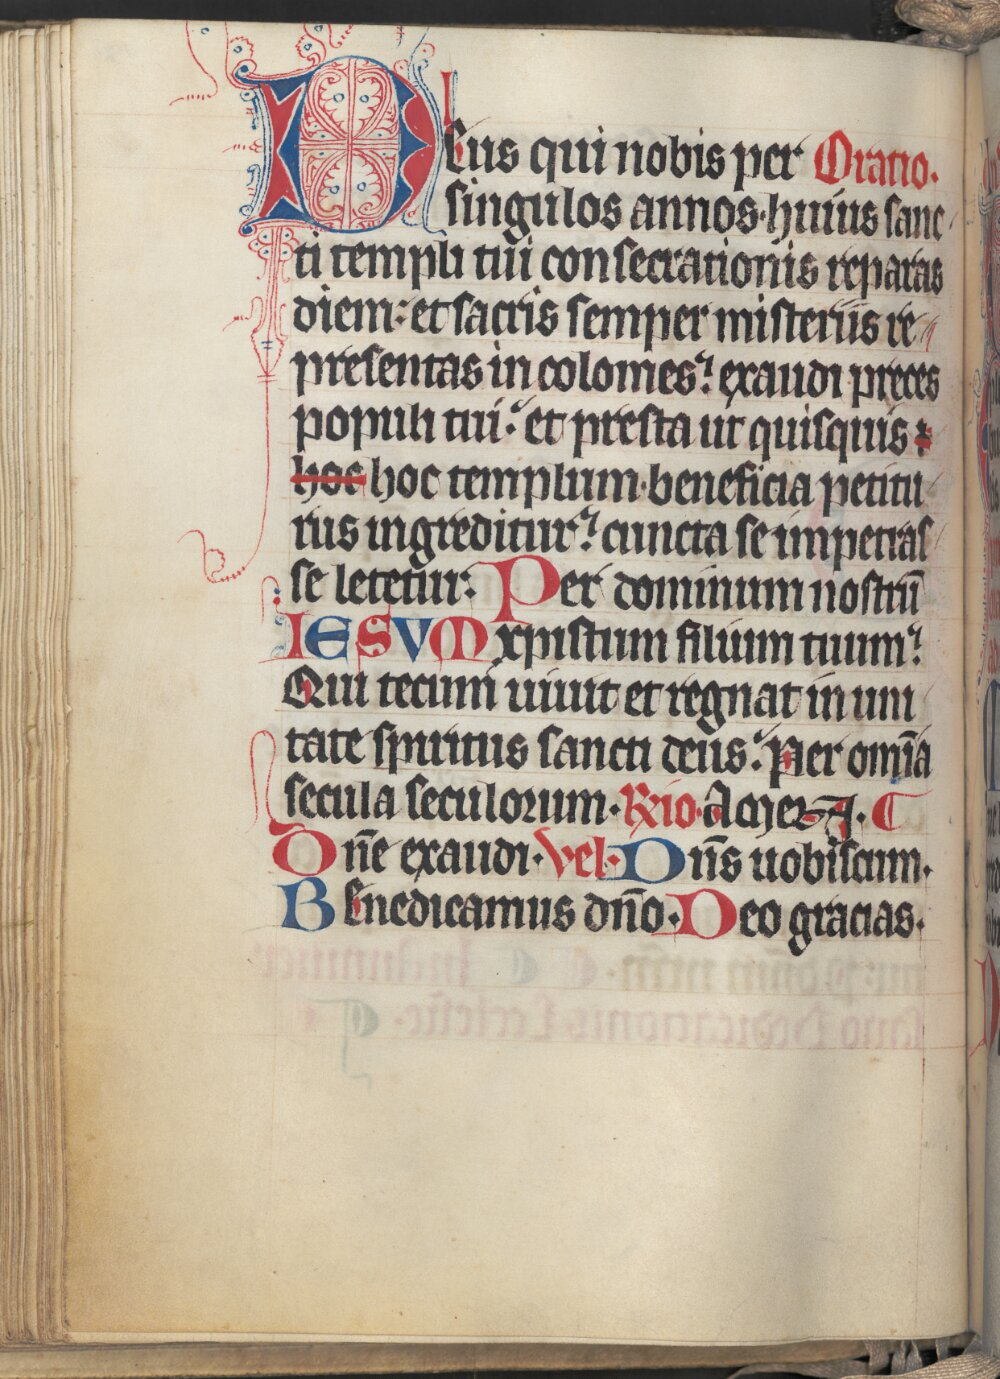 Deus qui nobis per Oratio.
singulos annos·huius sanc
ti templi tui consecrationis reparas
diem: et sacris semper misteriis re
presentas incolomes: exaudi preces
populi tui: et presta ut quisquis
hoc hoc templum·beneficia petitu
rus ingreditur: cuncta se impetras
se letetur: Per dominum nostrū
IESVM xpistum filium tuum:
Qui tecum uiuit et regnat in uni
tate spiritus sancti deus: Per omīa
secula seculorum· Rxio· Amen·
Dn̄e exaudi· vel· Dn̄s uobiscum·
Benedicamus dn̄o· Deo gracias·